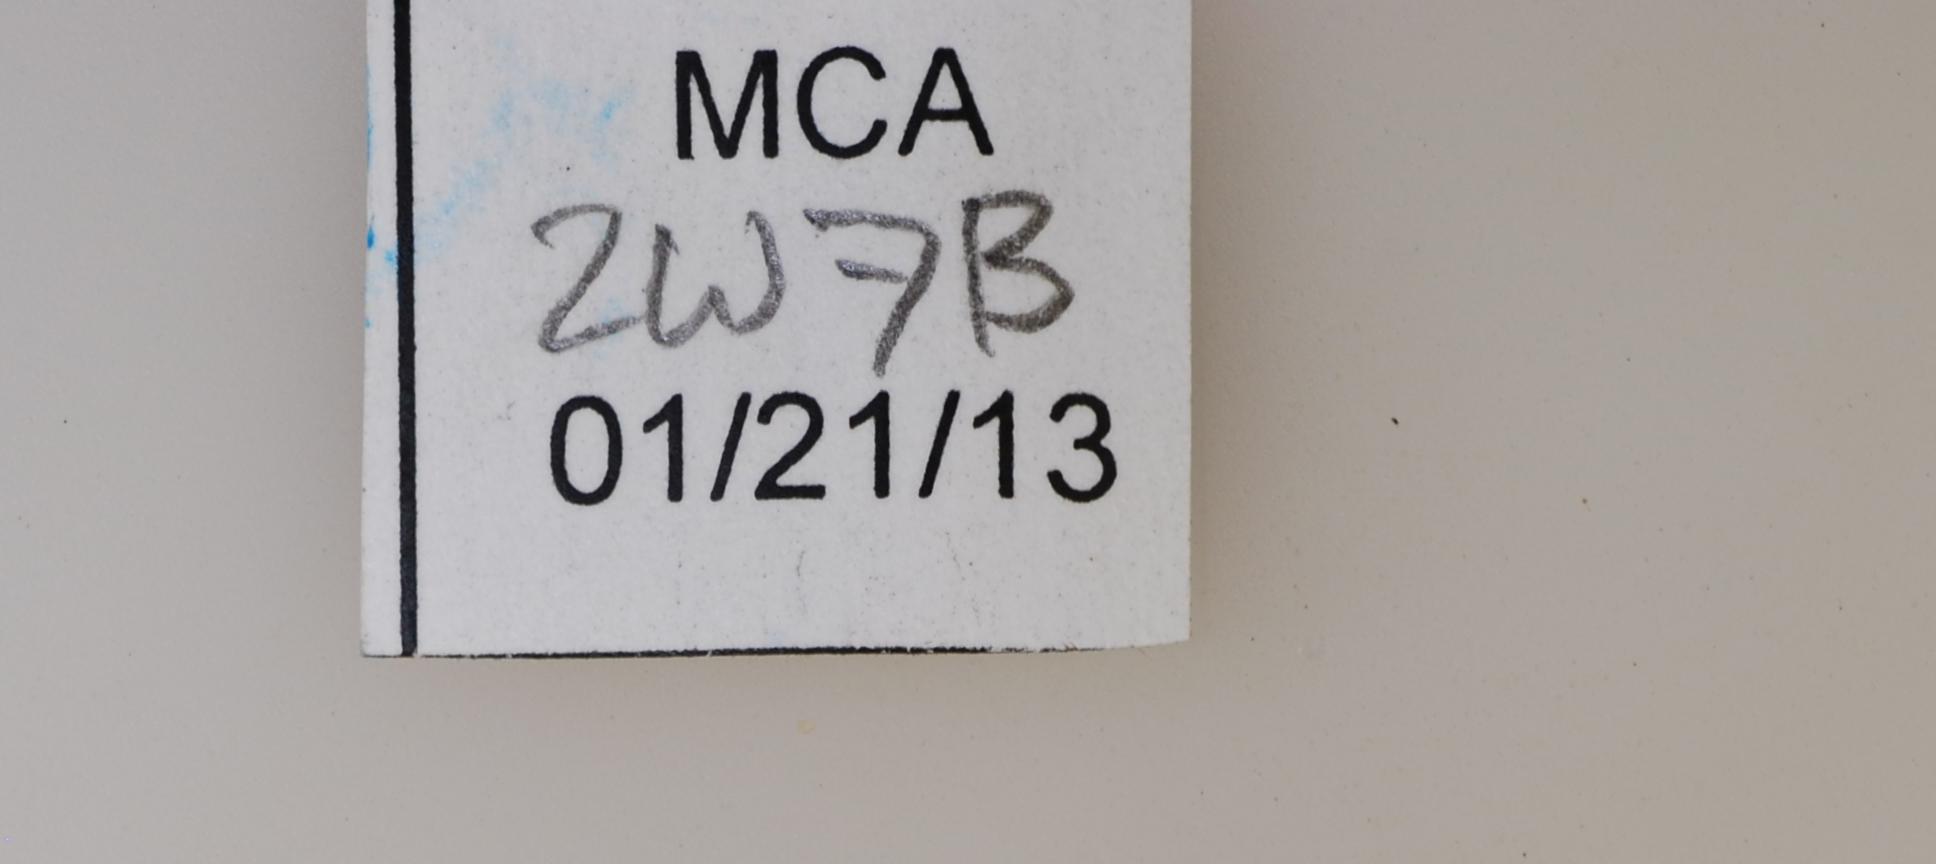 MCA
2W7B
01/21/13